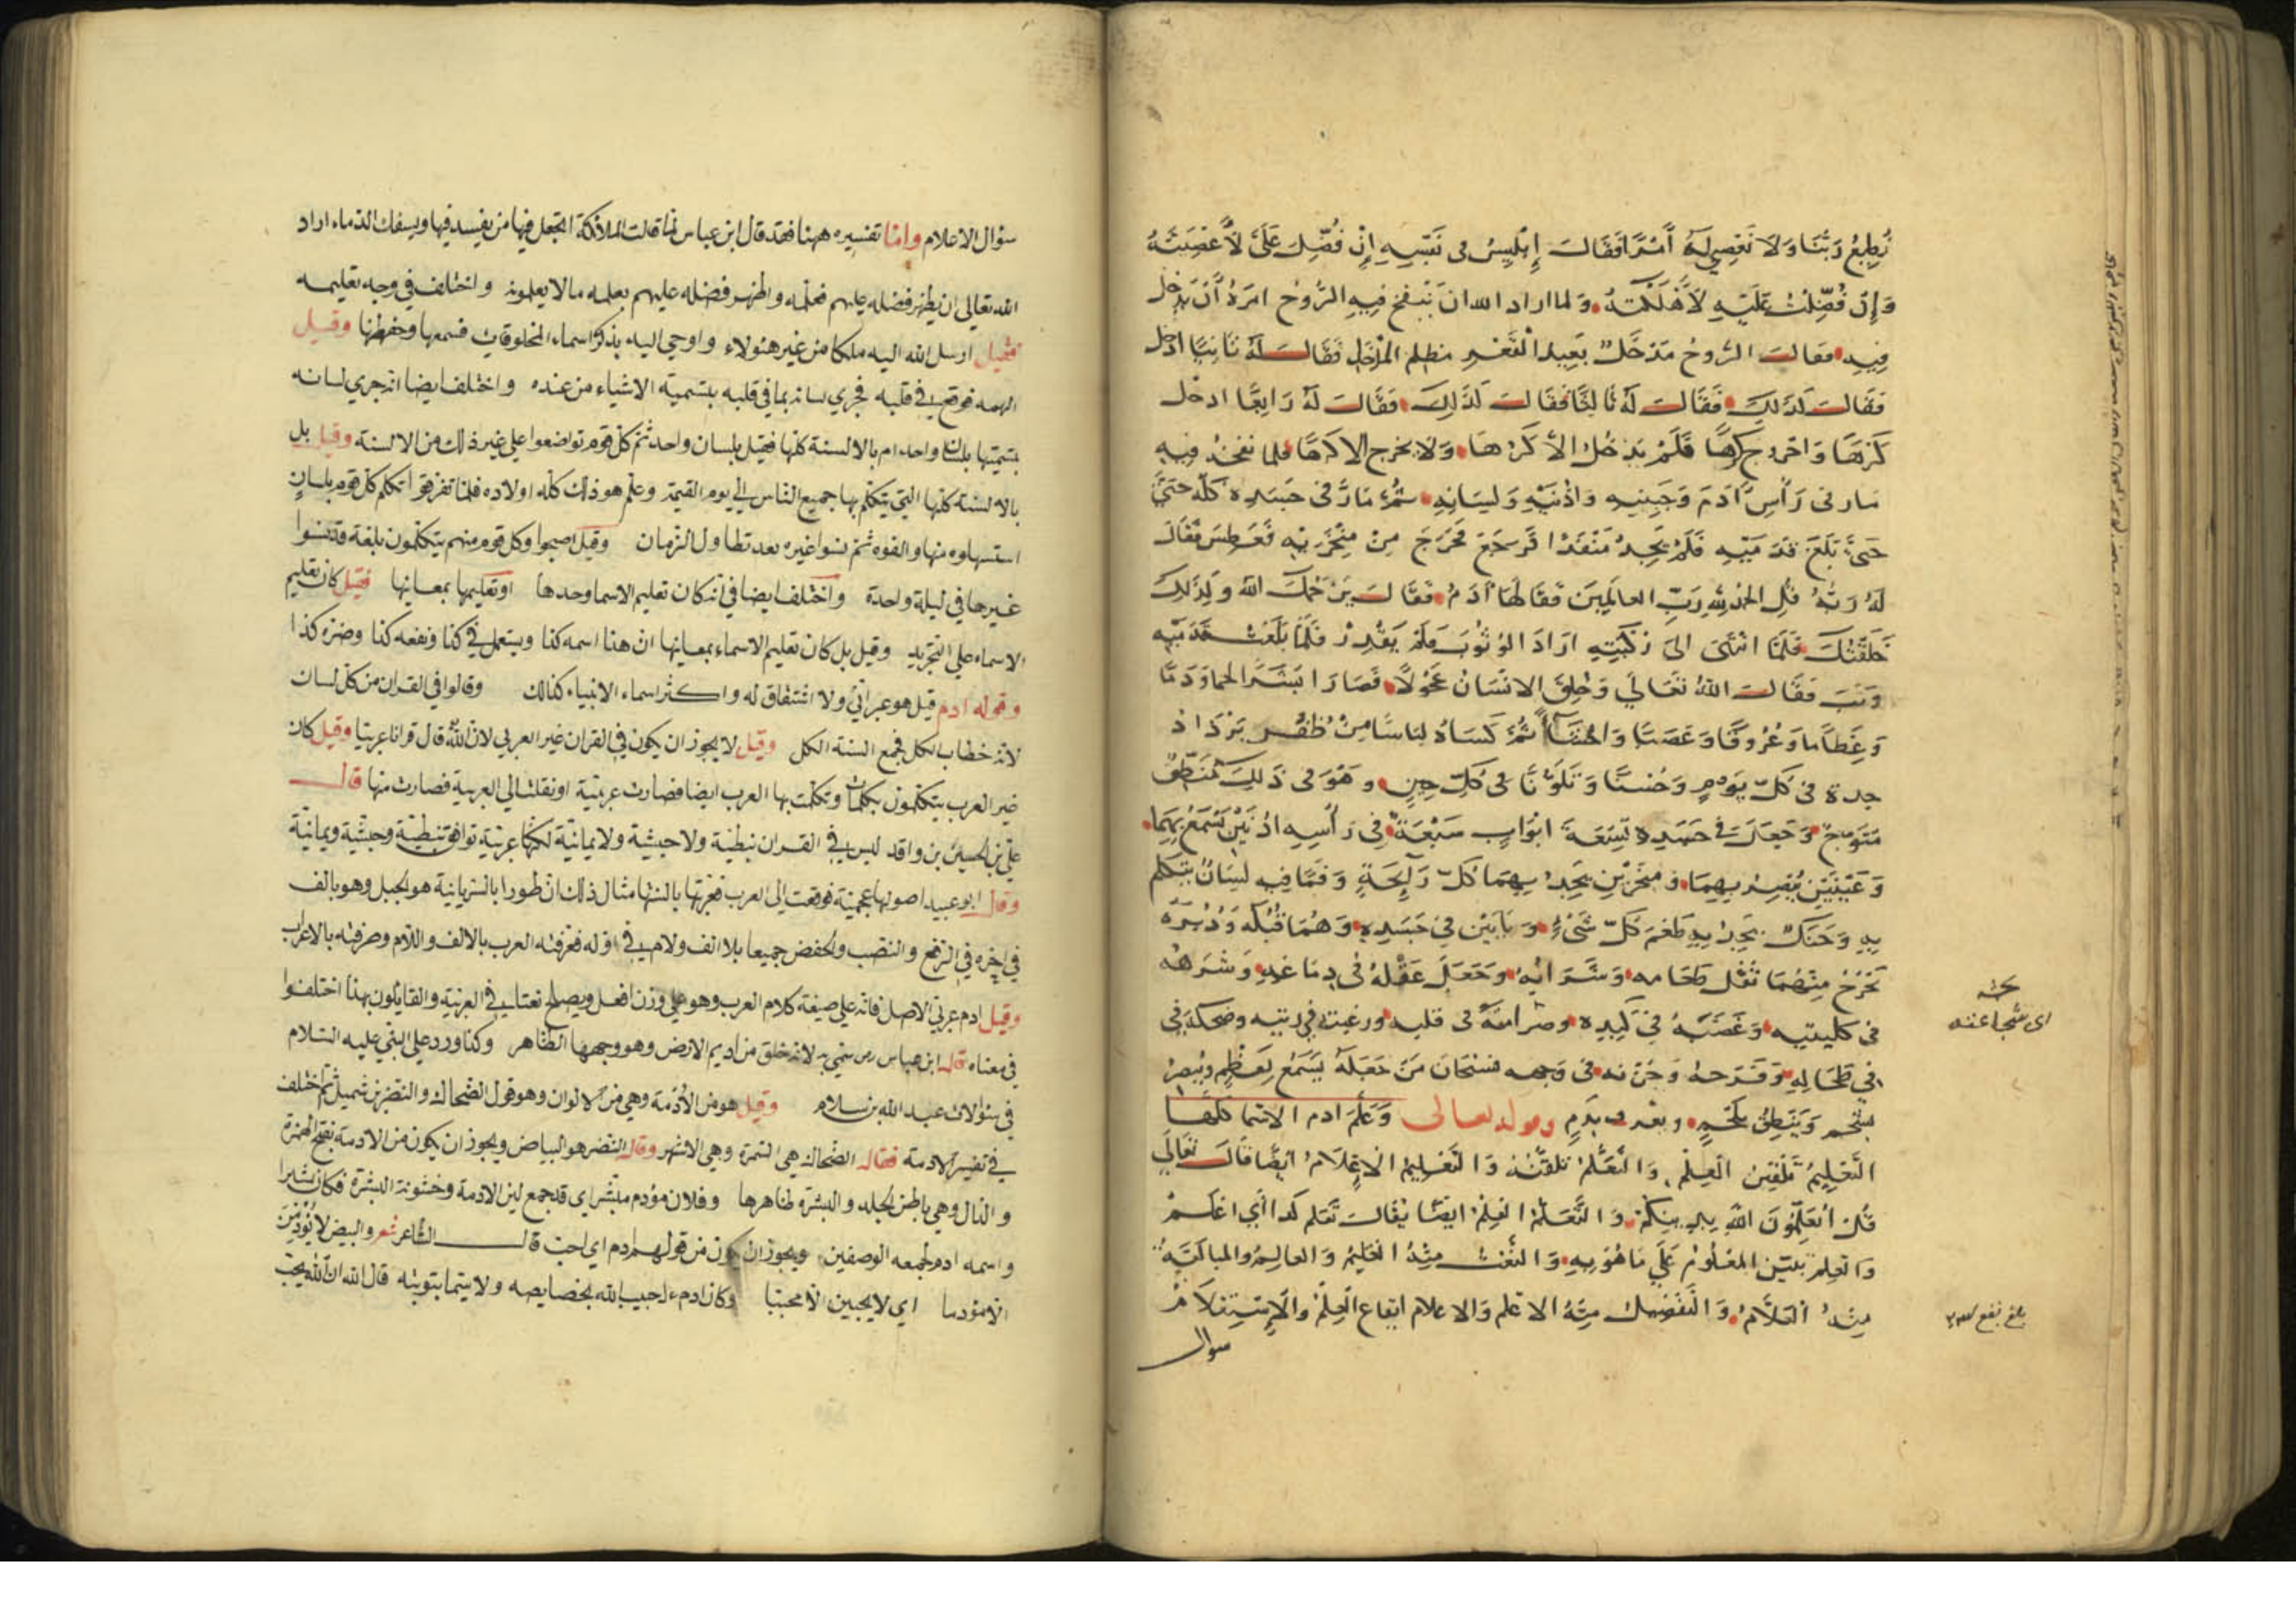 نُطِيعُ رَبَّنَا وَلَا نَعْصِي لَهُ أَمْرًا فَقَالَ إِبْلِيسُ فى نَفْسِهِ إِنْ فُضِّلَ عَلَيَّ لَأَعْصِيَنَّهُ
وَإِنْ فُضِّلْتُ عَلَيْهِ لَأُهْلِكَنَّهُ ولما اراد الله ان يَنْفخ فِيهِ الرُّوحَ امَرَهُ أَنْ يَدخل
فِيهِ فقالت الرُّوحُ مَدْخَلٌ بَعِيدُ الْقَعْرِ مظلم المدْخَلِ فَقَالَ لَهُ ثَانِيًا ادخل
فقالت كذلك فَقَالَ لَهُ ثَالِثًا فَقَالَت كَذَلِكَ فَقَالَ لَهُ رَابِعًا ادخل
كَرْهًا وَاخرج كرهًا فَلَمْ يَدْخُلْ الا كَرْهًا وَلا يخرج الا كرها فلما نفخه فيه
مار فى رَأْسِ آدَمَ وَجَبِينِهِ وَاذْنَيْهِ وَلِسَانِهِ ثُمَّ مَارَ فى جَسَدِهِ كلّه حتى
حَتَّى بَلَغَ قَدَمَيْهِ فَلَمْ يَجِدْ مَنْفَذًا فَرَجَعَ فخَرَجَ مِنْ مِنْخَرَيْهِ فَعَطَسَ فَقَالَ
لَهُ رَبُّهُ قُلِ الحمدُ لِلّهِ رَبِّ العالَمِينَ فَقَالَهَا آدَمُ فَقَالَ يَرْحَمُكَ اللهُ وَلِذَلِكَ
خَلَقْتُكَ فَلَمَّا انْتَهَى الى رُكْبَتَيْهِ ارَادَ الوُثُوبَ فَلَمْ يَقْدِرْ فَلَمَّا بَلَغَتْ قَدَمَيْهِ
وَثَبَ فَقَالَ اللهُ تَعَالَى وَخُلِقَ الانْسَانُ عَجُولًا فَصَارَ بَشَرًا لحمًا وَدَمًا
وَعِظَامًا وَعُرُوقًا وَعَصَبًا وَاحْشَاءً ثُمَّ كَسَاهُ لِبَاسًا مِنْ ظُفُرٍ يَزْدَاد
جدة فى كُلِّ يَوْمٍ وَحُسْنًا وَتَلَوُّنًا فى كُلِّ حِينٍ وهُوَ فى ذَلِكَ مُنَطَّقٌ
مُتَوَّجٌ وَجَعَلَ فى جَسَدِهِ تِسْعَةَ ابْوَابٍ سَبْعَةٌ فِي رَأْسِهِ اذُنَيْنِ يَسْمَعُ بِهِمَا
وَعَيْنَيْنِ يُبْصِرُ بِهِمَا وَمِنْخَرَيْنِ يَجِدُ بِهِمَا كُلَّ رَايِحَةٍ وَفَمًا فِيهِ لِسَانٌ يتكلم
بِهِ وَحَنَكٌ يَجِدُ بِهِ طَعْمَ كُلِّ شَىْءٍ وَبَابَيْنِ فِي جَسَدِهِ وَهُمَا قُبُلُهُ وَدُبُرُهُ
يَخْرُجُ مِنْهُمَا ثُفْل طَعَامِه وَشَرَابِهِ وَجَعَلَ عَقْلَهُ فى دِمَاغِهِ وَشَرَهَهُ
فى كليتيه وَغَضَبَهُ فِي كَبِدِهِ وصَرَامَتَهُ فى قلبه ورغبته فى ريته وضحكه فى
فِي طِحَالِهِ وَفَرَحَهُ وَحُزْنه فى وَجهه فسُبْحَانَ مَنْ جَعَلَهُ يَسْمَعُ بِعَظْمٍ وَيُبْصِرُ
بشَحْم وَيَنْطِقُ بِلَحْمٍ ويعرف بِدَمٍ وقوله تعالى وَعَلَّمَ آدم الاسما كلّها
التَّعْلِيمُ تَلْقِينُ العِلْمِ وَالتَّعَلُّمُ تَلَقُّنُهُ وَالتَّعْلِيمُ الإِعْلَامُ ايْضًا قَالَ تَعَالَى
قُلْ أَتُعَلِّمُونَ اللهَ بِدِينِكُمْ وَالتَّعَلُّمُ العِلْمُ ايْضًا يُقَالُ تَعَلَّم كَذَا أَيْ اعْلَمْ
وَالعِلم تَبَيُّن المَعْلُومِ عَلَى مَا هُوَ بِهِ وَالنَّعْتُ مِنْهُ العَلِيمُ وَالعَالِمُ والمبالغَةُ
مِنْهُ العَلَّامُ وَالتَّفْضِيلُ مِنْهُ الاعْلَم وَالاعلام ايقاع الْعِلْمِ والاستعلامُ
سوال
بحثه
اى شجاعته
بلغ
سؤال الاعلام وامّا تفسيره ههنا فقد قال ابن عباس لمّا قالت الملائكة اتجعل فيها من يفسد فيها ويسفك الدماء اراد
الله تعالى ان يظهر فضله عليهم فعلّمه واظهر فضله عليهم بعلمه مالا يعلمونه واختلف في وجه تعليمه
فقيل ارسل الله اليه ملكا من غير هٶلاء واوحي اليه بذكر اسماء المخلوقات فسمعها وحفظها وقيل
الهمه فوقع في قلبه فجري لسانه بما في قلبه بتسمية الاشياء من عنده واختلف ايضا انه جري لسانه
بتسميتها بلسان واحد ام بالالسنة كلّها فقيل بلسان واحد ثمّ كلّ قوم تواضعوا علي غير ذلك من الالسنة وقيل بل
بالالسنة كلّها التي يتكلّم بها جميع الناس الي يوم القيمة وعلّم هو ذلك كلّه اولاده فلمّا تفرّقوا تكلّم كلّ قوم بلسان
استسهلوه منها والفوه ثمّ نسوا غيره بعد تطاول الزمان وقيل اصبحوا وكلّ قوم منهم يتكلّمون بلغة قد نسوا
غيرها في ليلة واحدة واختلف ايضا في انّه كان تعليم الاسما وحدها او تعليمها بمعانيها فقيل كان تعليم
الاسماء علي التجريد وقيل بل كان تعليم الاسماء بمعانيها انّ هذا اسمه كذا ويستعمل في كذا ونفعه كذا وضرّه كذا
وقوله ادم قيل هو عبرانيّ ولا اشتقاق له واكثر اسماء الانبياء كذلك وقالوا في القران من كلّ لسان
لانّه خطاب لكلّ فجمع السنة الكل وقيل لا يجوز ان يكون في القران غير العربي لانّ الله قال قرانا عربيّا وقيل كان
غير العرب يتكلّمون بكلمات وتكلّمت بها العرب ايضا فصارت عربيّة او نقلت الي العربية فصارت منها قال
عليّ بن الحسين بن واقد ليس في القران نبطيّة ولا حبشيّة ولا يمانيّة لكنّها عربيّة توافق نبطيّة وحبشيّة ويمانيّة
وقال ابو عبيد اصولها عجميّة فوقعت الي العرب فعرّبتها بالسنتها مثال ذلك انّ طورا بالسريانية هو الجبل وهو بالف
في اخره في الرفع والنصب والخفض جميعا بلا الف ولام في اوّله فعرّفته العرب بالالف واللام وصرفته بالاعراب
وقيل ادم عربيّ الاصل فانّه علي صيغة كلام العرب وهو علي وزن افعل ويصلح نعتا في العربيّة والقايلون بهذا اختلفوا
في معناه قال ابن عباس رض سمّي به لانّه خلق من اديم الارض وهو وجهها الظاهر وكذا ورد علي النبي عليه السلام
في سؤالات عبد الله بن سلام وقيل هو من الأدمة وهي من الالوان وهو قول الضحاك والنضر بن شميل ثمّ اختلف
في تفسير الادمة فقال الضحاك هي السمرة وهي الاشهر وقال النضر هو البياض ويجوز ان يكون من الادمة بفتح الهمزة
والدال وهي باطن الجلد والبشرة ظاهرها وفلان مؤدم مبشر اي قد جمع لين الادمة وخشونة البشرة فكان بشرا
واسمه ادم لجمعه الوصفين ويجوز ان يكون من قولهم ادم اي احبّ قال الشاعر شعر والبيض لا يؤدمن
الّا مؤدما اي لا يحببن الّا محببّا وكان ادم ء احبيب الله بخصايصه ولا سيّما بتوبته قال الله انّ الله يحبّ